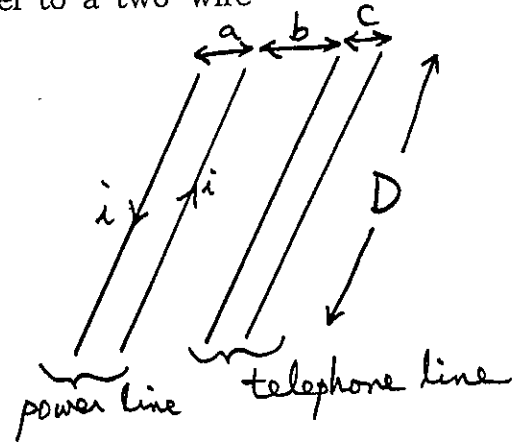 er to a two wire
a b c
i i D
power line telephone line